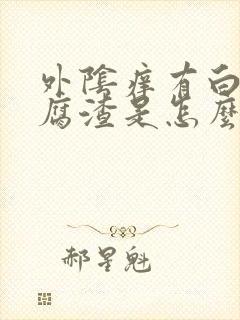 外陰痒有白
腐渣是怎麼
郝星魁